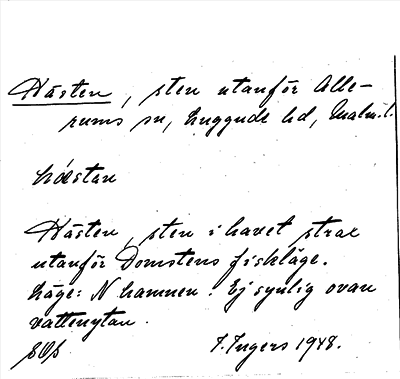 Hästen, sten utanför Alle-
rums sn, Luggude hd, Malm. l.
hö́stan
Hästen, sten i havet strax
utanför Domstens fiskläge.
Läge: N hamnen. Ej synlig ovan
vattenytan.
I. Ingers 1948.